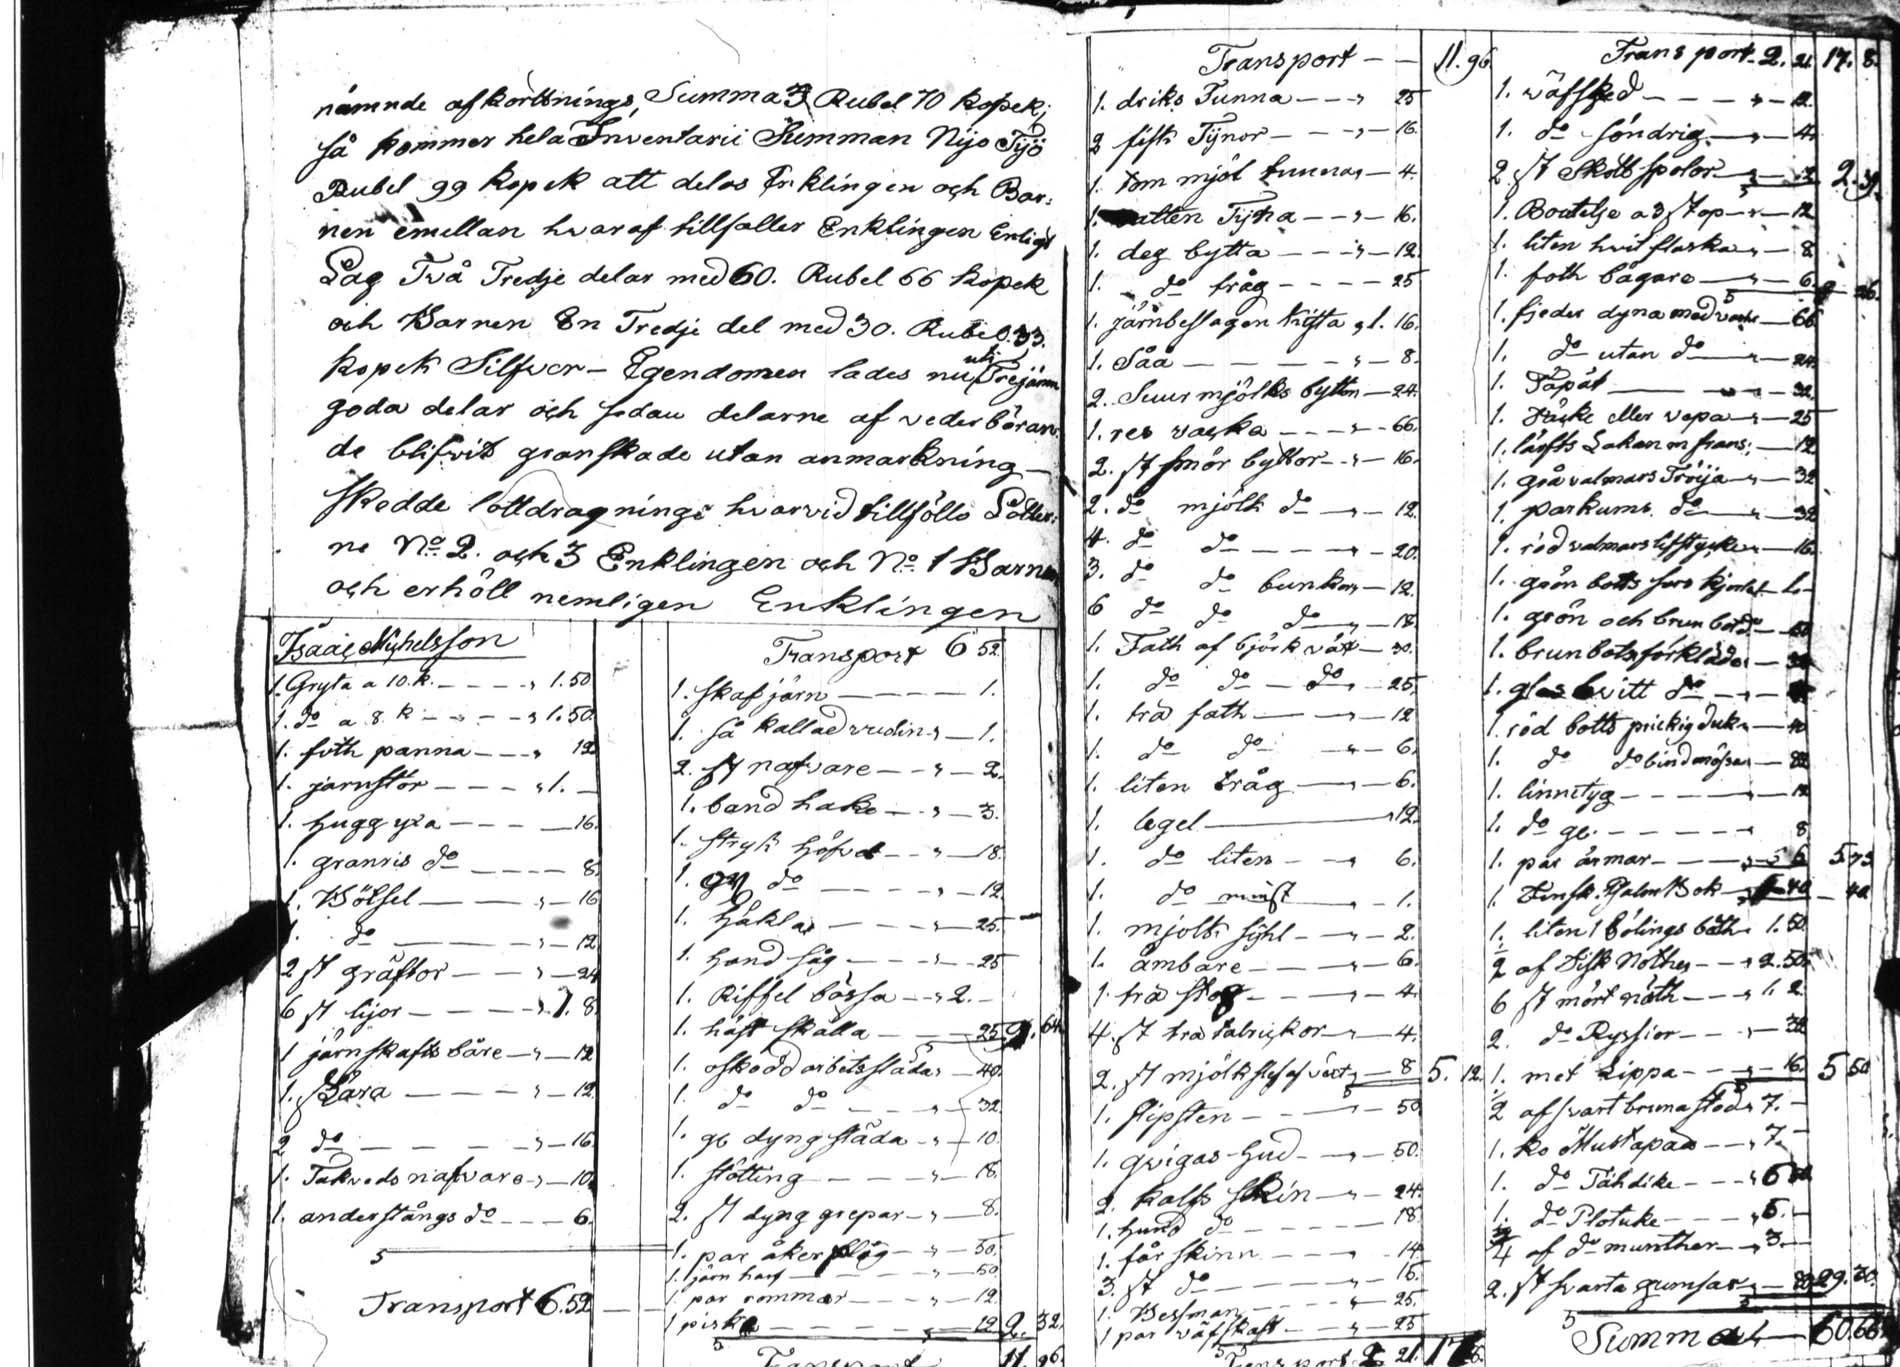 nämnde afkortnings, Summa 3 Rubel 70 kopek;
så kommer hela Inventarii Summan Nijo Tijo
Rubel 99 kopek att delas Enklingen och Bar:
nen emellan hvaraf tillfaller Enklingen Enligt
Lag Två Tredje delar med 60. Rubel 66 kopek
och Barnen En Tredje del med 30. Rubel 33.
kopek Silfver – Egendomen lades nu uti Trejämn
goda delar och sedan delarne af vederböran:
de blifvit granskade utan anmärkning –
skedde lottdragnings hvarvid tillföllo Lotter:
ne No 2. och 3 Enklingen och No 1 Barnen
och erhöll nemligen Enklingen
Isaac Michelsson
1. Gryta a 10. k. – – – „ 1.50
1. do a 8 k – – – „ 1.50.
1. foth panna – – – „ 12
1. jarnstör – – – „ 1. –
1. hugg yxa – – – – 16.
1. granris do – – – – 8.
1. Bötsel – – – „ – 16
1. do – – – „ – 12
2 st gräftor – – – „ – 24
6 st lijor – – – „ 1. 8.
1 järnskafts båre – „ – 12
1. Kära – – – „ – 12
2 do – – – „ – 16.
1. Takveds nafvare – „ – 10.
1. anderstångs do – – – 6.
Transport 6.52
Transport 6 52
1. skafjärn – – – 1.
1. så kallad – „ – 1.
2. st nafvare – – „ – 2.
1. band hake – – „ – 3.
1. stryk höfvel – – „ – 18.
1. do – – – „ – 12.
1. Häkla – – – „ – 25. –
1. hand såg – – – „ – 25
1. Riffel bössa – – „ 2. –
1. häst skälla – – – 25 9. 64
1. oskodd arbetsslädar – 40.
1. do do – – – „ – 32.
1. gl dyngsläda – „ – 10.
1. stötting – – – „ – 18.
2. st dyng grepar – „ – 8.
1. par åker plog – „ – 30.
1. järn harf – – – „ – 50
1. par rommar – – – „ – 12.
1 piska – – – – 12 2. 32.
Transport 11. 96.
Transport – – 11. 96.
1. driks Tunna – – – „ 25
2 fisk Tynor – – – „ – 16.
1. tom mjöl tunna – 4.
1. vatten Tyna – – „ – 16.
1. deg bytta – – – „ – 12.
1. do tråg – – – – 25
1. järnbeslagen kista „ 1. 16.
1. Såå – – – – „ – 8.
2. Suur mjölks bytton – 24.
1. res väska – – – „ – 66.
2. st smör byttor – „ – 16.
2. do mjölk do – „ – 12.
4. do do – – – „ – 20.
3. do do bunkar – 12.
6 do do do – „ – 18.
1. Fath af björk växt – 30.
1. do do – do – 25.
1. trä fath – – „ – 12
1. do do – „ – 6.
1. liten tråg – – „ – 6.
1. legel – – – „ 12.
1. do liten – – „ 6.
1. do minst – „ – 1.
1. mjölk sijhl – – „ – 2.
1. ämbare – – – „ – 6.
1. trä stop – – – „ – 4.
4. st trä talrickor – „ – 4.
2. st mjölk – 8 5. 12.
1. slipsten – – – „ – 50
1. qvigas hud – – „ – 50.
2. kalfs skin – „ – 24.
1. hund do – – – – 18
1. får skinn – – – „ – 14.
3. st do – – – – „ – 15.
1. Besman – – – „ – 25.
1 par väfskaft – – „ – 25
Transport 2. 21. 17 8.
Transport 2. 21. 17. 8.
1. väfsked – – – „ – 12.
1. do söndrig – „ – 4.
2. st Skottspolor – „ – 2. 39.
1. Boutelje a 3 stop – „ – 12
1. liten hvit flaska – „ – 8
1. foth bägare – „ – 6 – 26.
1. fjeder dyna med var – 66.
1. do utan do – „ – 24.
1. Täpät – – „ – 32
1. Täcke eller vepa – „ – 25
1. lärfts Lakan m frans: – 12
1. grå valmars Tröija – „ – 32
1. parkums do – „ – 32
1. röd valmars lifstycke „ – 16.
1. grön botts kjortel – 1. –
1. grön och brun do – 50
1. brun botsförkläde – 32
1. glas hvitt do – – „ –
1. röd botts prickig duk „ – 40
1. do do bindmössa – 32
1. linnetyg – – – „ – 12
1. do gl. – – – – „ 8
1. par ärmar – – – „ – 6 5.73
1. Finsk. Psalm Bok – „ – 40 – 40.
1. liten 1 Bölings båth „ 1.50
2 af Fisk Nother – – „ 2.50.
6 st mört näth – – „ 1. 2
2. do Ryssior – – – „ – 32
1. met Lippa – – – „ – 16. 5 50
2 af svart bruna stod „ 7. –
1. ko Mustapää – – „ 7. –
1. do Tähdike – – – „ 6
1. do Plotuke – – – – „ 5. –
3/4 af do munther – – „ 3. –
2. st svarta gumsar – – 29. 30.
Summa – 60.66